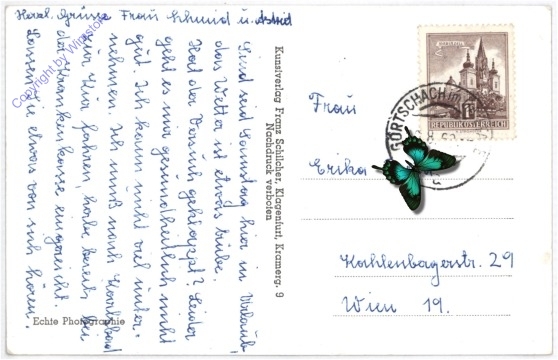 Herzl. Grüsse Frau Schmid u. Astrid
Sind seid Samstag hier in Urlaub,
das Wetter ist etwas trübe.
Hat der Besuch geklappt? Leider
geht es mir gesundheitlich nicht
gut. Ich kann nicht viel unter-
nehmen. Ich muß nach Karlsbad
zur Kur fahren, habe bereits bei
der Krankenkasse eingereicht.
Lassen Sie etwas von sich hören.
Copyright by Winstore
Echte Photographie
Kunstverlag Franz Schilcher, Klagenfurt, Kramerg. 9
Nachdruck verboten
REPUBLIK ÖSTERREICH
GÖRTSCHACH
Frau
Erika
Kahlenbergerstr. 29
Wien 19.